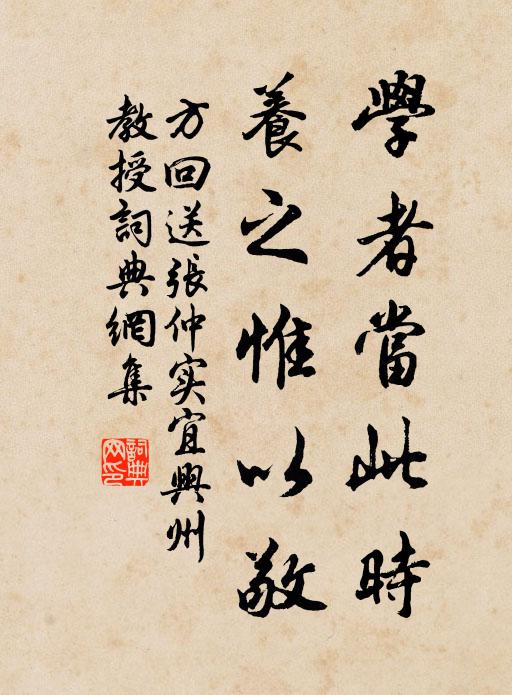 學者當此時
養之惟以敬
方回送張仲实宜興州
教授詞典網集
詞典
网印